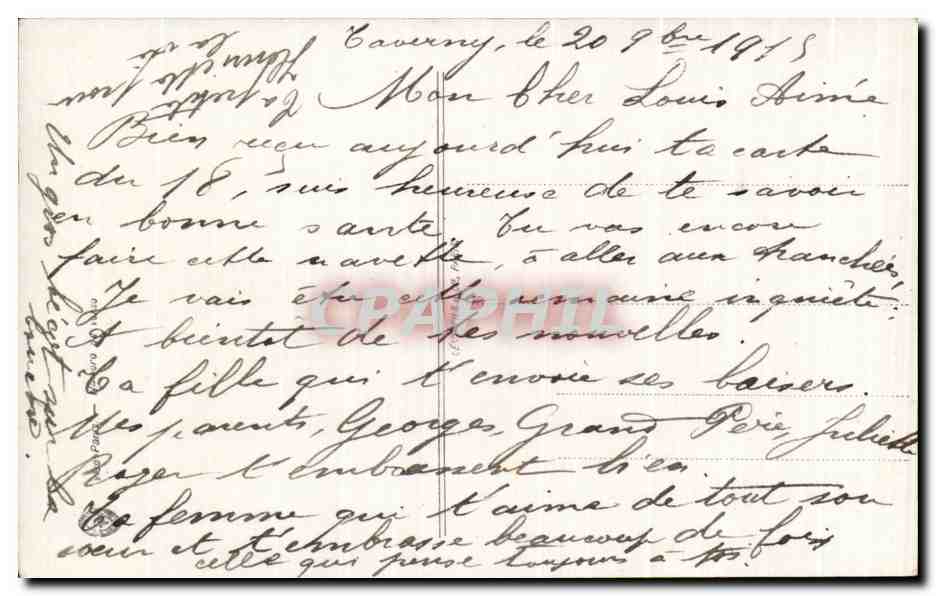 Taverny, le 20 9bre 1915
Mon Cher Louis Aimé
Bien reçu aujourd'hui ta carte
du 18, suis heureuse de te savoir
en bonne santé. Tu vas encore
faire cette navette, à aller aux tranchées,
Je vais être cette semaine inquiète.
A bientot de tes nouvelles.
Ta fille qui t'envoie ses baisers.
Mes parents, Georges, Grand Père, Juliette
Roger t'embrassent bien.
Ta femme qui t'aime de tout son
cœur et t'embrasse beaucoup de fois
celle qui pense toujours à toi.
Un gros bécot sur ta
bouche.
Ta petite
pour
la vie
CPAPHIL